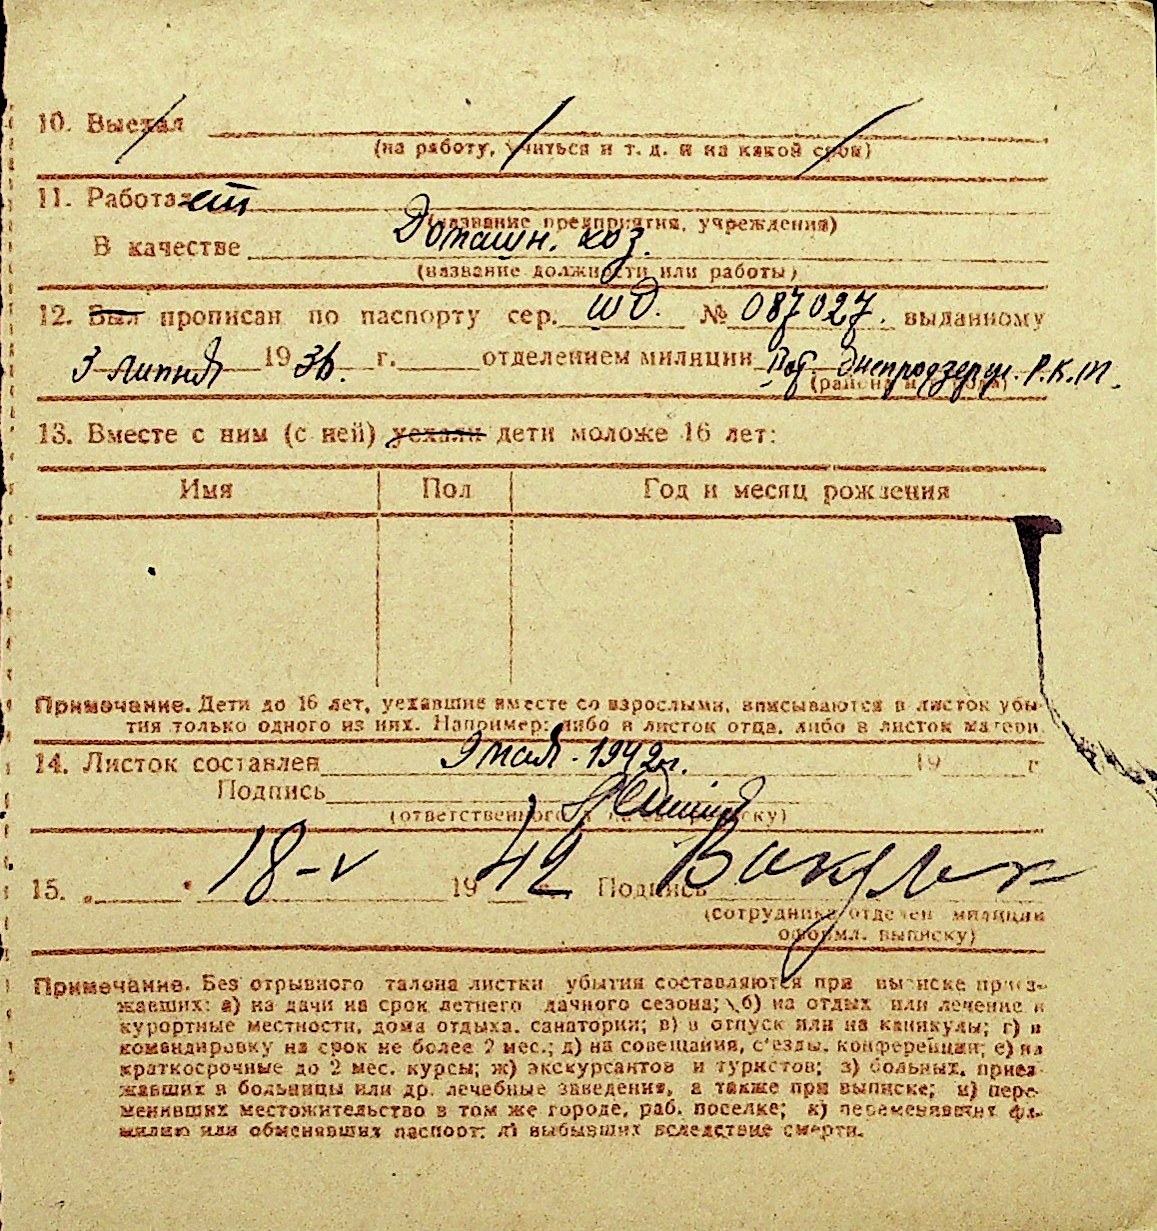 10. Выехал
(на работу, учиться и т. д. и на какой срок)
11. Работает
(название предприятия, учреждения)
В качестве Домашн. хоз.
(название должности или работы)
12. Был прописан по паспорту сер. ШО. № 087027. выданному
3 липня 1936. г. отделением милиции Днепродзерж. Р.К.М.
(района и города)
13. Вместе с ним (с ней) уехали дети моложе 16 лет:
Имя Пол Год и месяц рождения
Примечание. Дети до 16 лет, уехавшие вместе со взрослыми, вписываются в листок убы-
тия только одного из них. Например: либо в листок отца, либо в листок матери
14. Листок составлен 9 мая 1942 г. 19 г
Подпись
(ответственного за выписку)
15. „ " 18-V 1942 Подпись
(сотрудника отделен милиции
оформл. выписку)
Примечание. Без отрывного талона листки убытия составляются при выписке приез-
жавших: а) на дачи на срок летнего дачного сезона; б) на отдых или лечение в
курортные местности, дома отдыха, санатории; в) в отпуск или на каникулы; г) в
командировку на срок не более 2 мес.; д) на совещания, с'езды, конференции; е) на
краткосрочные до 2 мес. курсы; ж) экскурсантов и туристов; з) больных, приез-
жавших в больницы или др. лечебные заведения, а также при выписке; и) пере-
менивших местожительство в том же городе, раб. поселке; к) переменивших фа-
милию или обменявших паспорт; л) выбывших вследствие смерти.